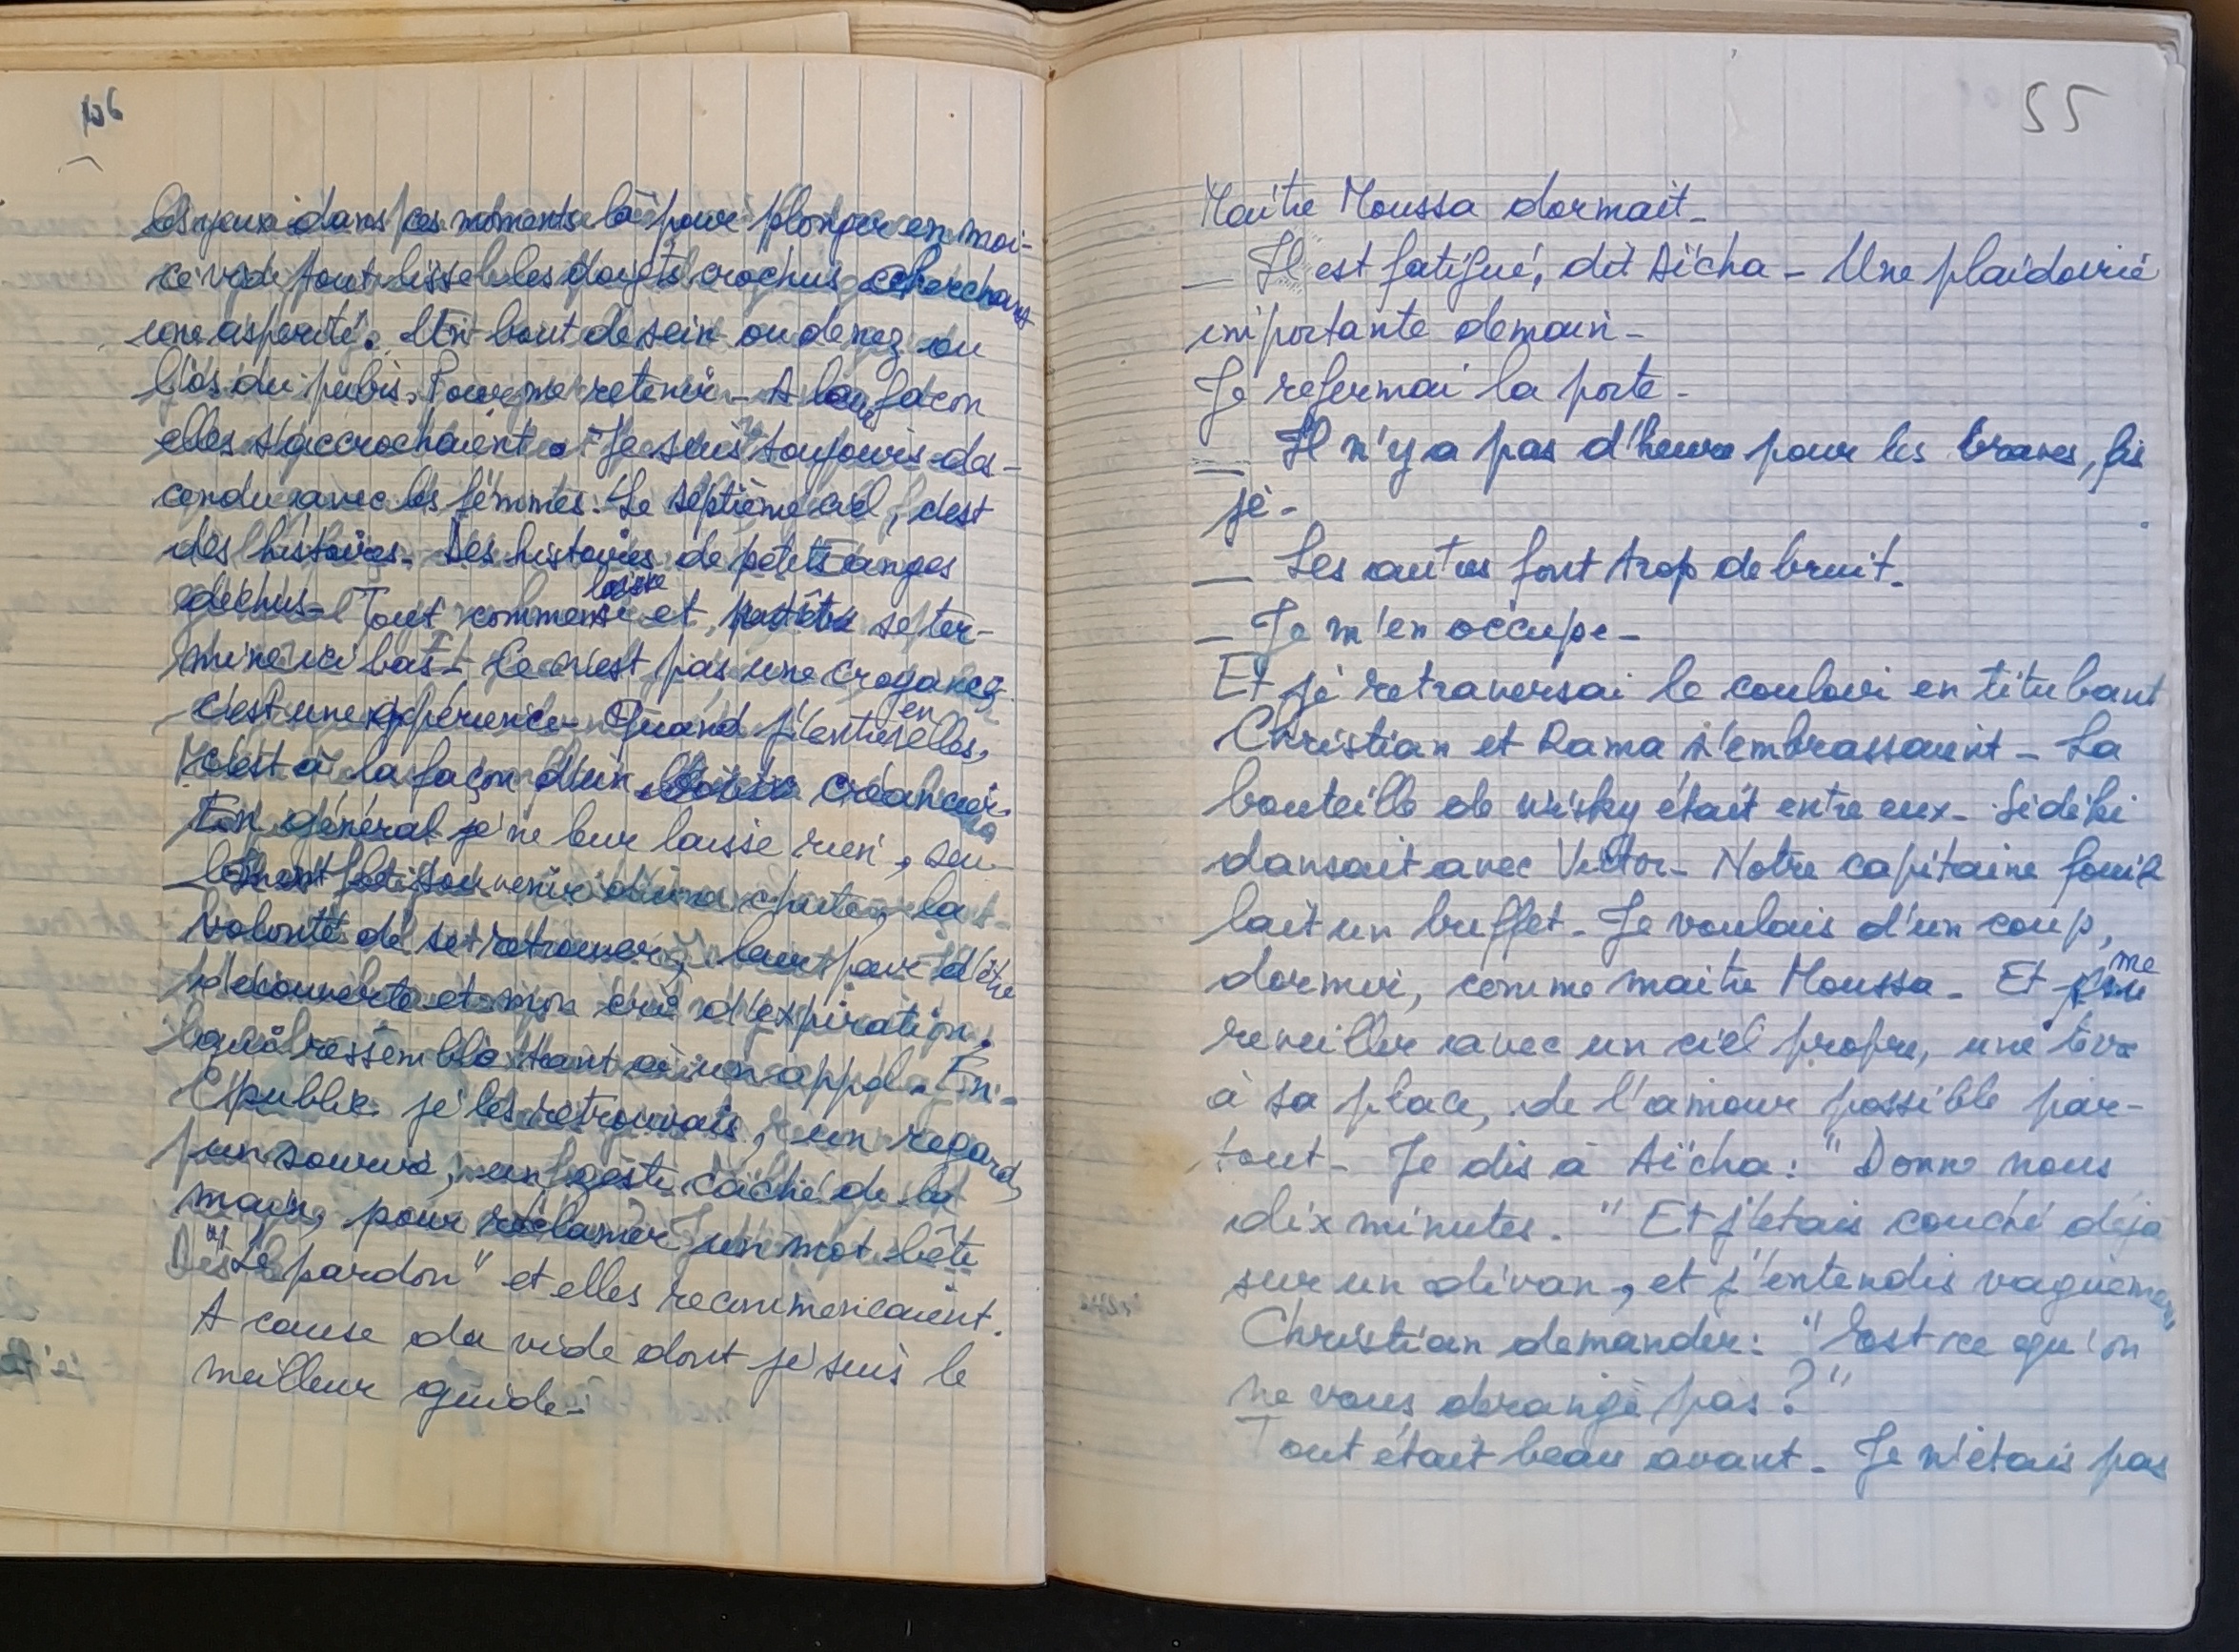 106
les yeux dans ces moments là pour plonger en moi-
ce vide tout lisse les doigts crochus cherchant
une asperité. Un bout de sein ou de nez ou
l'os du pubis. Pour me retenir - A leur facon
elles s'accrochaient. Je suis toujours des-
cendu avec les femmes. Le septième ciel, c'est
des histoires. Des histoires de petits anges
dechus - Tout commence et, se ter-
mine ici bas - Ce n'est pas une croyance
c'est une expérience - Quand j'entre en elles,
c'est à la façon d'un créancier.
En général je ne leur laisse rien, seu-
lement souvenir d'une chute, la
volonté de se retrouver, leur peur d'être
decouverte et mon cri d'expiration.
qui ressemble tant à un appel. En
public je les retrouvais, un regard,
un sourire, un geste caché de la
main, pour réclamer un mot bête
"Le pardon" et elles recommencaient.
A cause du vide dont je suis le
meilleur guide -
55
Maitre Moussa dormait -
_ Il est fatigué, dit Aïcha - Une plaidoirie
importante demain -
Je refermai la porte -
_ Il n'y a pas d'heure pour les braves, fis
je -
_ Les autres font trop de bruit.
_ Je m'en occupe -
Et je retraversai le couloir en titubant
Christian et Rama s'embrassaient - La
bouteille de wisky était entre eux - Sidibi
dansait avec Victor - Notre capitaine fouil
lait un buffet - Je voulais d'un coup,
dormir, comme maitre Moussa - Et me
reveiller avec un ciel propre, une terre
à sa place, de l'amour possible par-
tout - Je dis à Aïcha : "Donne nous
dix minutes." Et j'étais couché déjà
sur un divan, et j'entendis vaguement
Christian demander : "Est ce qu'on
ne vous derange pas ?"
Tout était beau avant - Je n'étais pas